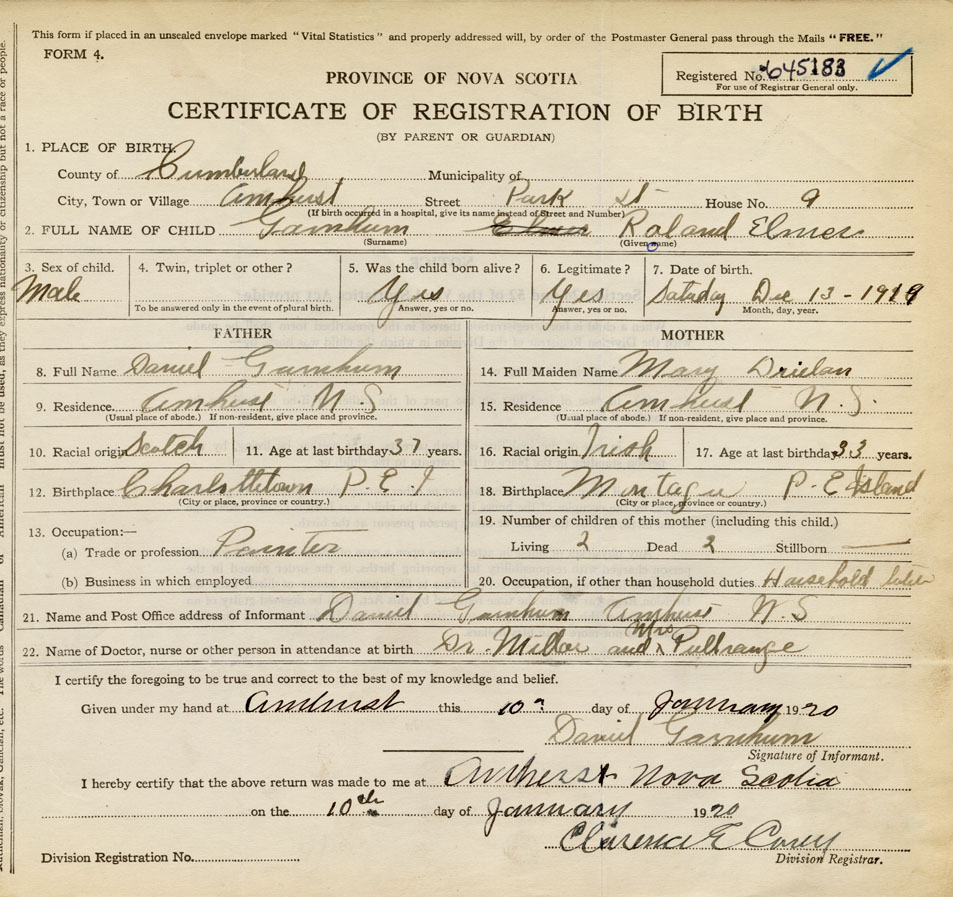 This form if placed in an unsealed envelope marked "Vital Statistics" and properly addressed will, by order of the Postmaster General pass through the Mails "FREE."
FORM 4.
Registered No. 645183
For use of Registrar General only.
PROVINCE OF NOVA SCOTIA
CERTIFICATE OF REGISTRATION OF BIRTH
(BY PARENT OR GUARDIAN)
1. PLACE OF BIRTH.
County of Cumberland Municipality of
City, Town or Village Amhust Street Park St House No. 9
(If birth occurred in a hospital, give its name instead of Street and Number)
2. FULL NAME OF CHILD Garnhum Elmer Roland Elmer
(Surname) (Given name)
3. Sex of child. 4. Twin, triplet or other? 5. Was the child born alive? 6. Legitimate? 7. Date of birth.
Male Yes Yes Dec 13 - 1919
To be answered only in the event of plural birth. Answer, yes or no. Answer, yes or no. Month, day, year.
FATHER MOTHER
8. Full Name Daniel Garnhum 14. Full Maiden Name Mary
9. Residence Amhust N S 15. Residence Amhust N. S.
(Usual place of abode.) If non-resident, give place and province. (Usual place of abode.) If non-resident, give place and province.
10. Racial origin Scotch 11. Age at last birthday 37 years. 16. Racial origin Irish 17. Age at last birthday 33 years.
12. Birthplace Charlottetown P. E. I 18. Birthplace Montague P. E Island
(City or place, province or country.) (City or place, province or country.)
13. Occupation:— 19. Number of children of this mother (including this child.)
(a) Trade or profession Painter Living 2 Dead 2 Stillborn —
(b) Business in which employed 20. Occupation, if other than household duties. Household
21. Name and Post Office address of Informant Daniel Garnhum Amhust N. S
22. Name of Doctor, nurse or other person in attendance at birth. Dr. Millar and Mrs
I certify the foregoing to be true and correct to the best of my knowledge and belief.
Given under my hand at Amhurst this 10th day of January 1920
Daniel Garnhum
Signature of Informant.
I hereby certify that the above return was made to me at Amherst Nova Scotia
on the 10th day of January 1920
Clarence E Corey
Division Registrar.
Division Registration No.